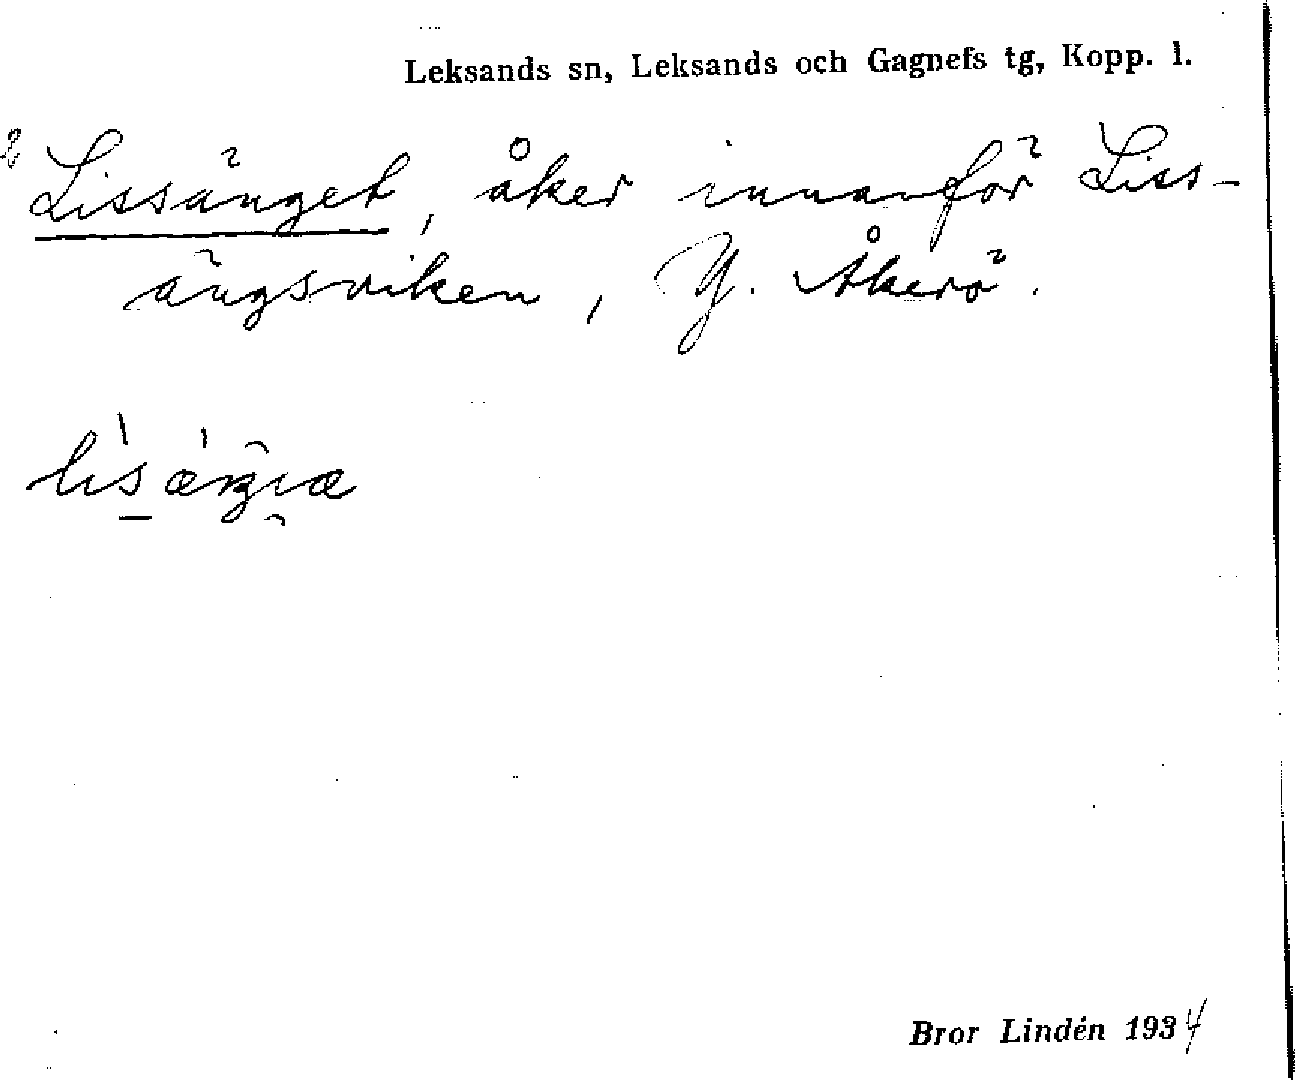 Leksands sn, Leksands och Gagnefs tg, Kopp. l.
Lissänget, åker innanför Liss-
ängsviken, Y. Åkerö.
Bror Lindén 1934